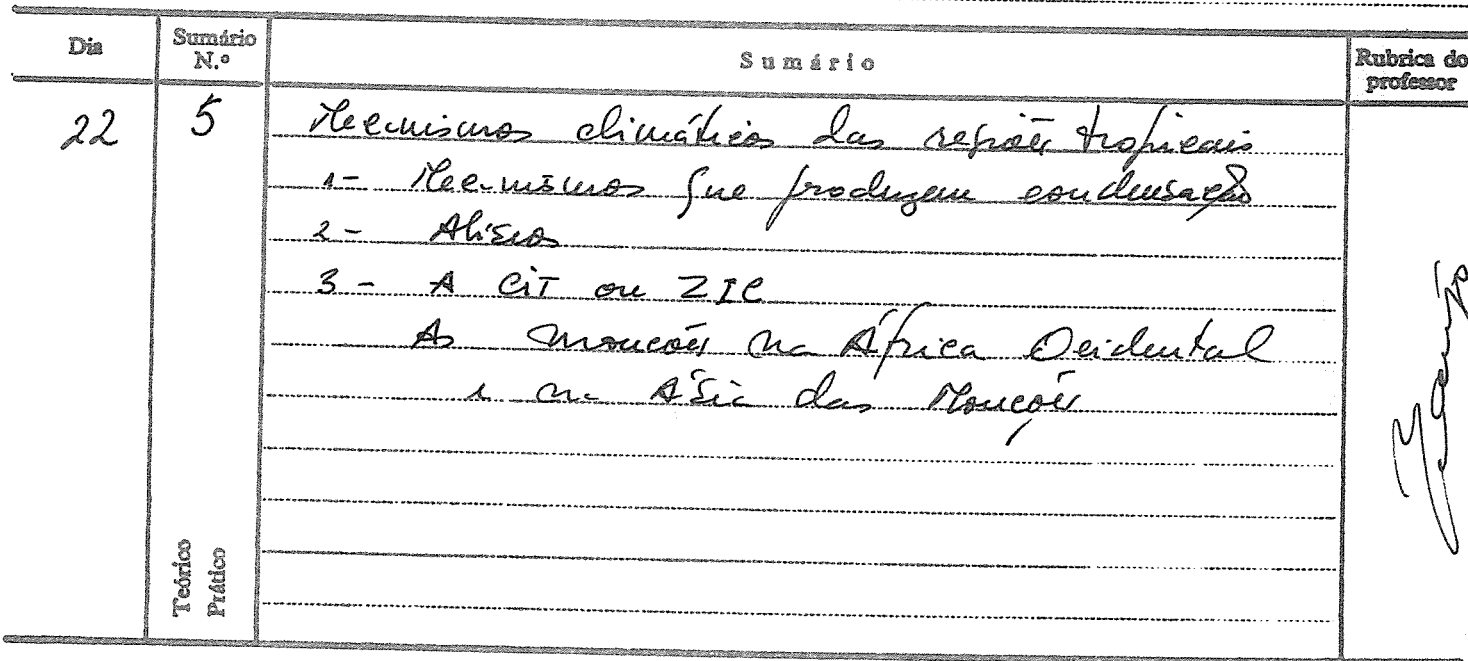 Dia
Sumário N.º
Sumário
Rubrica do professor
22
5
Mecanismos climáticos das regiões tropicais
1- Mecanismos que produzem condensação
2- Alíseos
3- A CIT ou ZIC
As monções na África Ocidental
e na Ásia das Monções
Teórico
Prático